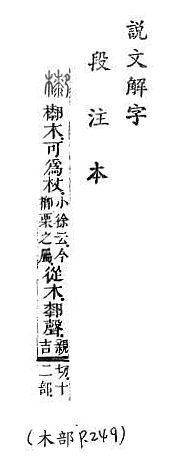 說文解字
段注本
木可爲杖小徐云今栗之屬從木䣛聲親吉切十二部
(木部 P.249)